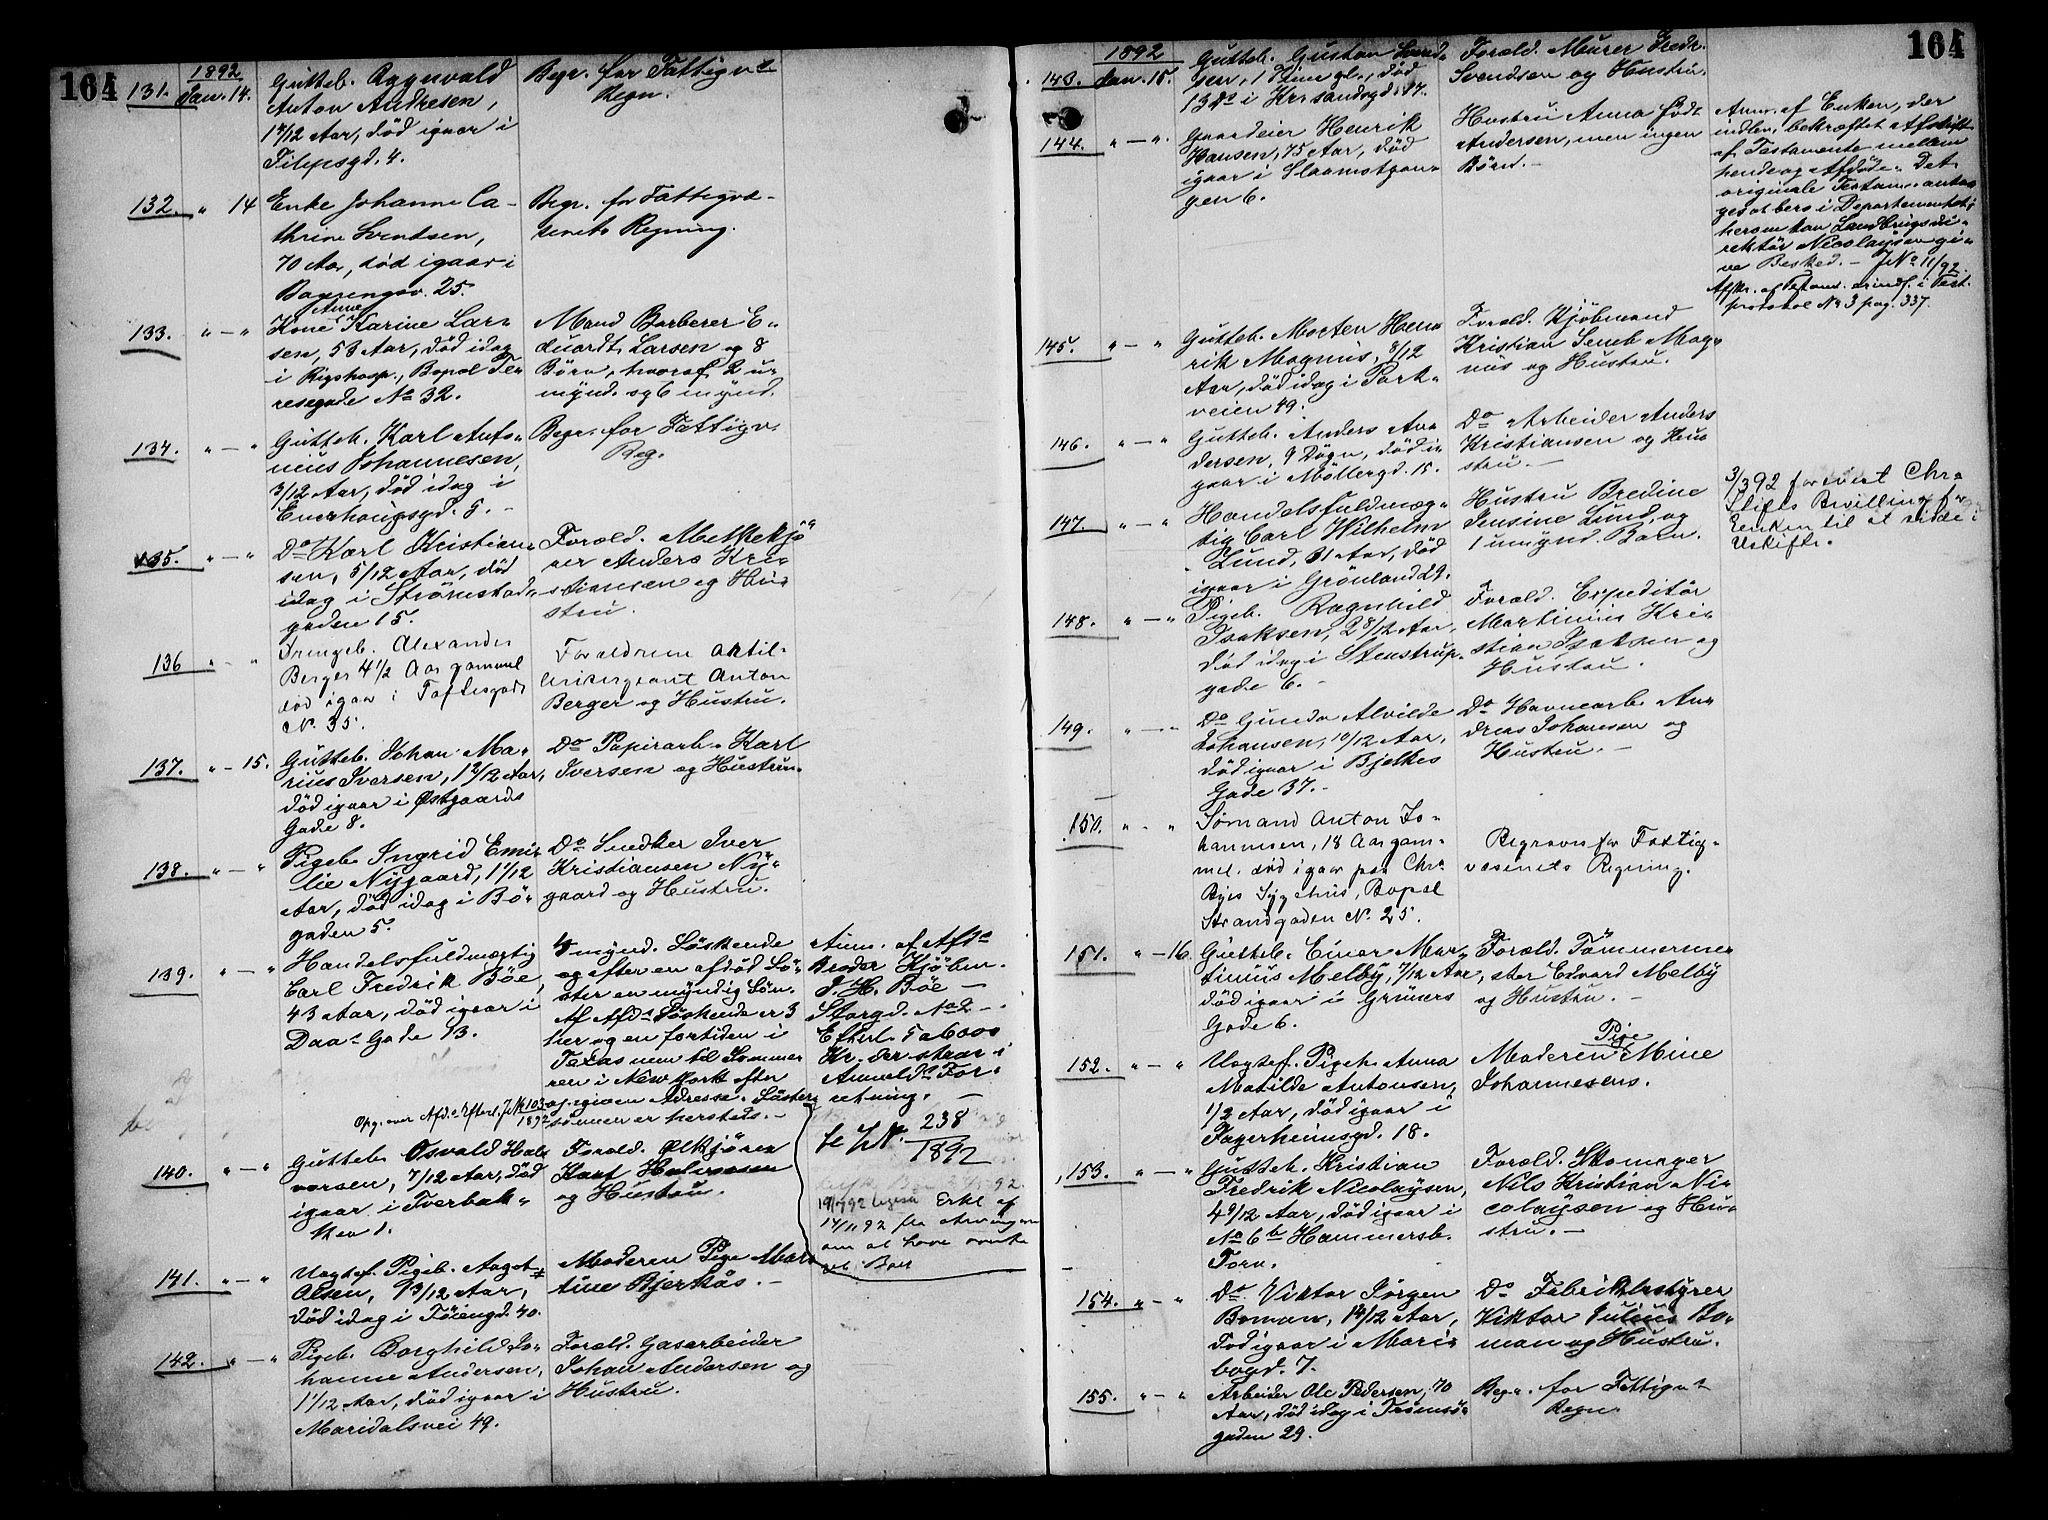 164
1892
131. Jan. 14. Gutteb. Ragnvald
Anton Andresen,
1 4/12 Aar, död igaar i
Filipsgd. 4.
Begr. for Fattigv.s
Regn.
132. " 14 Enke Johanne Ca-
thrine Svendsen,
70 Aar, död igaar i
25.
Begr. for Fattigvæ-
senets Regning.
133. " — " Kone Anne Karine Lar-
sen, 53 Aar, död idag
i Rigshosp., Bopæl The-
resegade No 32.
Mand Barberer E-
duardt Larsen og 8
Börn, hvoraf 2 u-
mynd. og 6 mynd.
134. " — " Gutteb. Karl Anto-
nius Johannesen,
3/12 Aar, död idag i
Enerhaugsgd. 5. -
Begr. for Fattigv.
Reg.
135. " — " Do Karl Kristian-
sen, 5/12 Aar, död
idag i Strömstad-
gaden 15.
Foræld. Melkekjö-
rer Anders Kri-
stiansen og Hu-
stru.
136 " — " Drengeb. Alexander
Berger 4 1/2 Aar gammel
död igaar i Toftesgade
No. 35.
Forældrene Artil-
lerisergeant Anton
Berger og Hustru.
137. " — 15. Gutteb. Johan Ma-
rius Iversen, 1 2/12 Aar,
död igaar i Østgaards
Gade 8.
Do Papirarb. Karl
Iversen og Hustru.
138. " — " Pigeb. Ingrid Emi-
lie Nygaard, 1 1/12
Aar, död idag i Bö-
gaden 5.
Do Snedker Iver
Kristiansen Ny-
gaard og Hustru.
139. " — " Handelsfuldmægtig
Carl Fredrik Böe,
43 Aar, död igaar i
Daas Gade 13.
Opg. over Afd.s Efterl. J.No 103
1892
4 mynd. Söskende
og efter en afdöd Sö-
ster en myndig Sön.
Af Afd.s Söskende er 3
her og en fortiden i
Texas men til Sommer
ren i New York efter
opgiven Adresse. Söster-
sönnen er hersteds. -
Anm. af Afd.s
Broder Kjöbm.
J. H. Böe —
Storgd. No 2 -
Efterl. 5 a 6000
Kr. der staar i
Anmeld.s For-
retning. -
Se J.No. 238
1892
Erkl. af
14/11 92 fra Arvingerne
om at have overta
get Boet
140. " — " Gutteb. Osvald Hal-
vorsen, 7/12 Aar, död
igaar i Tverbak-
ken 1.
Foræld. Ølkjörer
Karl Halvorsen
og Hustru.
141. " — " Uegtef. Pigeb. Aagot
Olsen, 1 3/12 Aar,
död idag i Töiengd. 40.
Moderen Pige Mar-
tine Bjerkås. -
142. " — " Pigeb. Borghild Jo-
hanne Andersen,
1 1/12 Aar, död igaar i
Maridalsvei 49.
Foræld. Gasarbeider
Johan Andersen og
Hustru.
164
1892
143. Jan. 15. Gutteb. Gustav Svend-
sen, 1 Time gl., död
13 Ds i Krsandsgd. 27.
Foræld. Murer Fredr.
Svendsen og Hustru.
144. " — " Gaardeier Henrik
Hansen, 75 Aar, död
igaar i Slaamotgan-
gen 6.
Hustru Anna födt
Andersen, men ingen
Börn. -
Anm. af Enken, der
indlev. bekræftet Afskrift
af Testamente mellem
hende og Afdöde. Det
originale Testam. antag.
bero i Departementet,
herom kan Landbrugsdi-
rektör Nicolaysen gi-
ve Besked. - J.No 11/92.
Afskr. af Testam. er indf. i Test.
protokol No 3 pag. 337.
145. " — " Gutteb. Morten Hen-
rik Magnus, 8/12
Aar, död idag i Park-
veien 49.
Foræld. Kjöbmand
Kristian Magn-
nus og Hustru.
146. " — " Gutteb. Anders An-
dersen, 9 Dögn, död i-
gaar i Möllergd. 15.
Do Arbeider Anders
Kristiansen og Hu-
stru. -
147. " — " Handelsfuldmæg-
tig Carl Wilhelm
Lund, 31 Aar, död
igaar i Grönland 29.
Hustru Bredine
Jensine Lund, og
1 umynd. Barn.
3/3 92 forevist Chr.a
Stifts Bevilling for
Enken til at sidde i
Uskifte.
148. " — " Pigeb. Ragnhild
Isaksen, 2 8/12 Aar,
död idag i Stenstrup-
gade 6. -
Foræld. Expeditör
Martinius Kri-
stian Isaksen og
Hustru.
149. " — " Do Gunda Alvilde
Johansen, 10/12 Aar,
död igaar i Bjelkes
Gade 37. -
Do Havnearb. An-
dreas Johansen og
Hustru. -
150. " — " Sömand Anton Jo-
hannesen, 18 Aar gam-
mel. död igaar paa Chr.a
Byes Sygehus, Bopæl
Strandgaden No. 25.
Begraves for Fattig-
væsenets Regning.
151. " — 16. Gutteb. Einar Mar-
tinius Melby, 7/12 Aar,
död igaar i Grüners
Gade 6.
Foræld. Tömmerme-
ster Edvard Melby
og Hustru. -
152. " — " Uegtef. Pigeb. Anna
Matilde Antonsen,
1/2 Aar, död igaar i
Fagerheimsgd. 18.
Moderen Pige Mine
Johannesens.
153. " — " Gutteb. Kristian
Fredrik Nicolaysen,
4 9/12 Aar, död igaar i
No 6 b Hammersb.
Torv.
Foræld. Skomager
Nils Kristian Ni-
colaysen og Hu-
stru. -
154. " — " Do Viktor Jörgen
Boman, 1 4/12 Aar,
död igaar i Mari-
bogd. 7.
Do Fabrikbestyrer
Viktor Julius Bo-
man og Hustru.
155. " — " Arbeider Ole Pedersen, 70
Aar, död idag i Tromsö-
gaden 29.
Begr. for Fattigv.s
Regn.